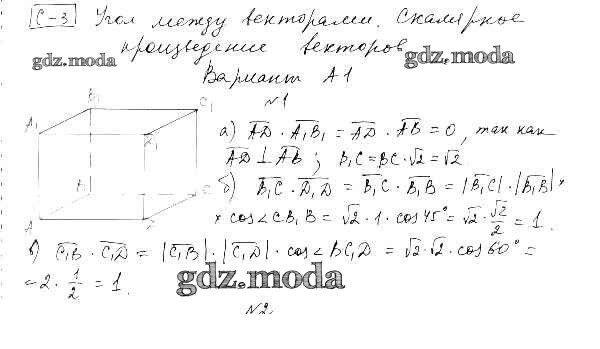 С-3 Угол между векторами. Скалярное
произведение векторов
gdz.moda
gdz.moda
Вариант А1
№1
B₁
C₁
A₁
B
C
A
а) AD · A₁B₁ = AD · AB = 0, так как
AD ⊥ AB ; B₁C = BC · √2 = √2
б) B₁C · D₁D = B₁C · B₁B = |B₁C| · |B₁B| ×
× cos ∠ CB₁B = √2 · 1 · cos 45° = √2 · √2/2 = 1.
в) C₁B · C₁D = |C₁B| · |C₁D| · cos ∠ BC₁D = √2 · √2 · cos 60° =
= 2 · 1/2 = 1.
gdz.moda
№2.